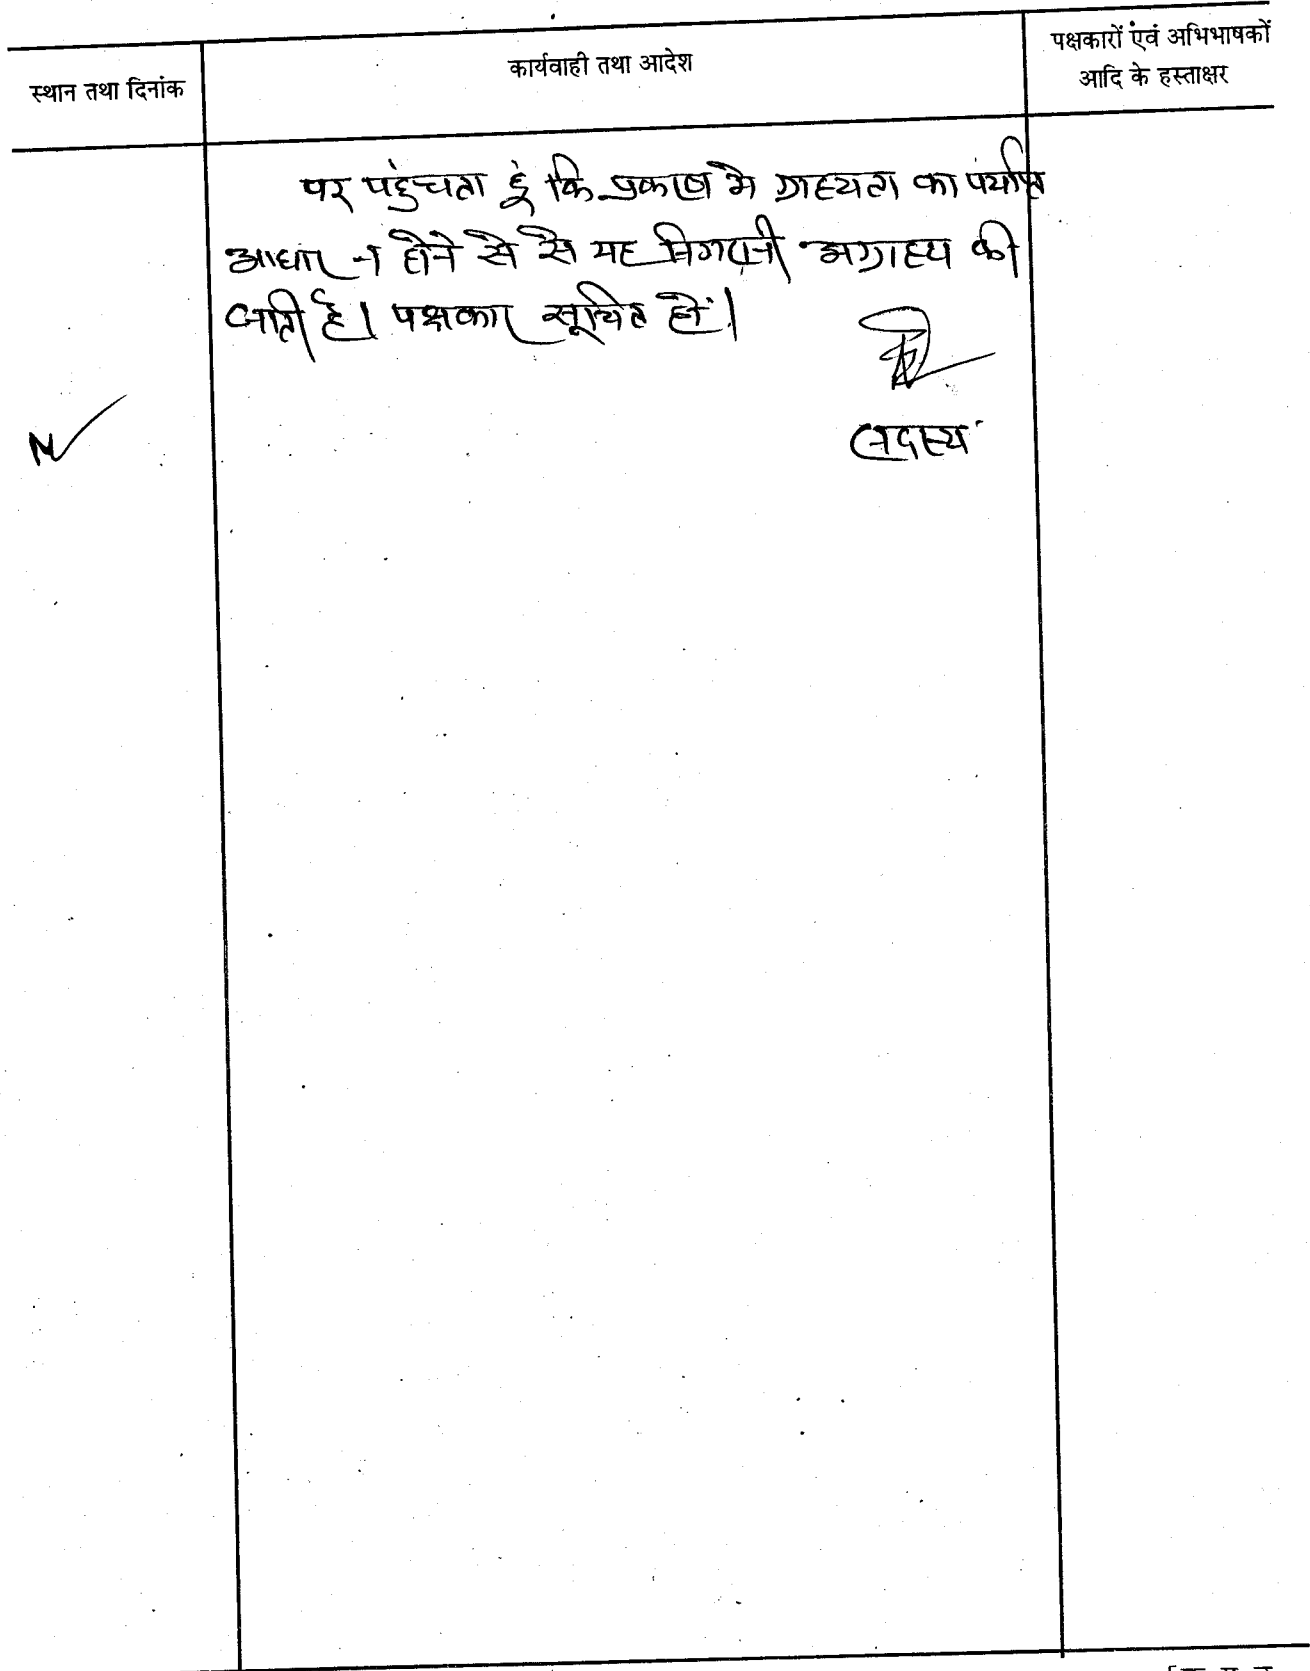 स्थान तथा दिनांक
कार्यवाही तथा आदेश
पक्षकारों एंवं अभिभाषकों
आदि के हस्ताक्षर
पर पहुंचता हूं कि प्रकरण मे ग्राह्यता का पर्याप्त
आधार न होने से से यह निगरानी अग्राह्य की
जाती है। पक्षकार सूचित हों।
सदस्य